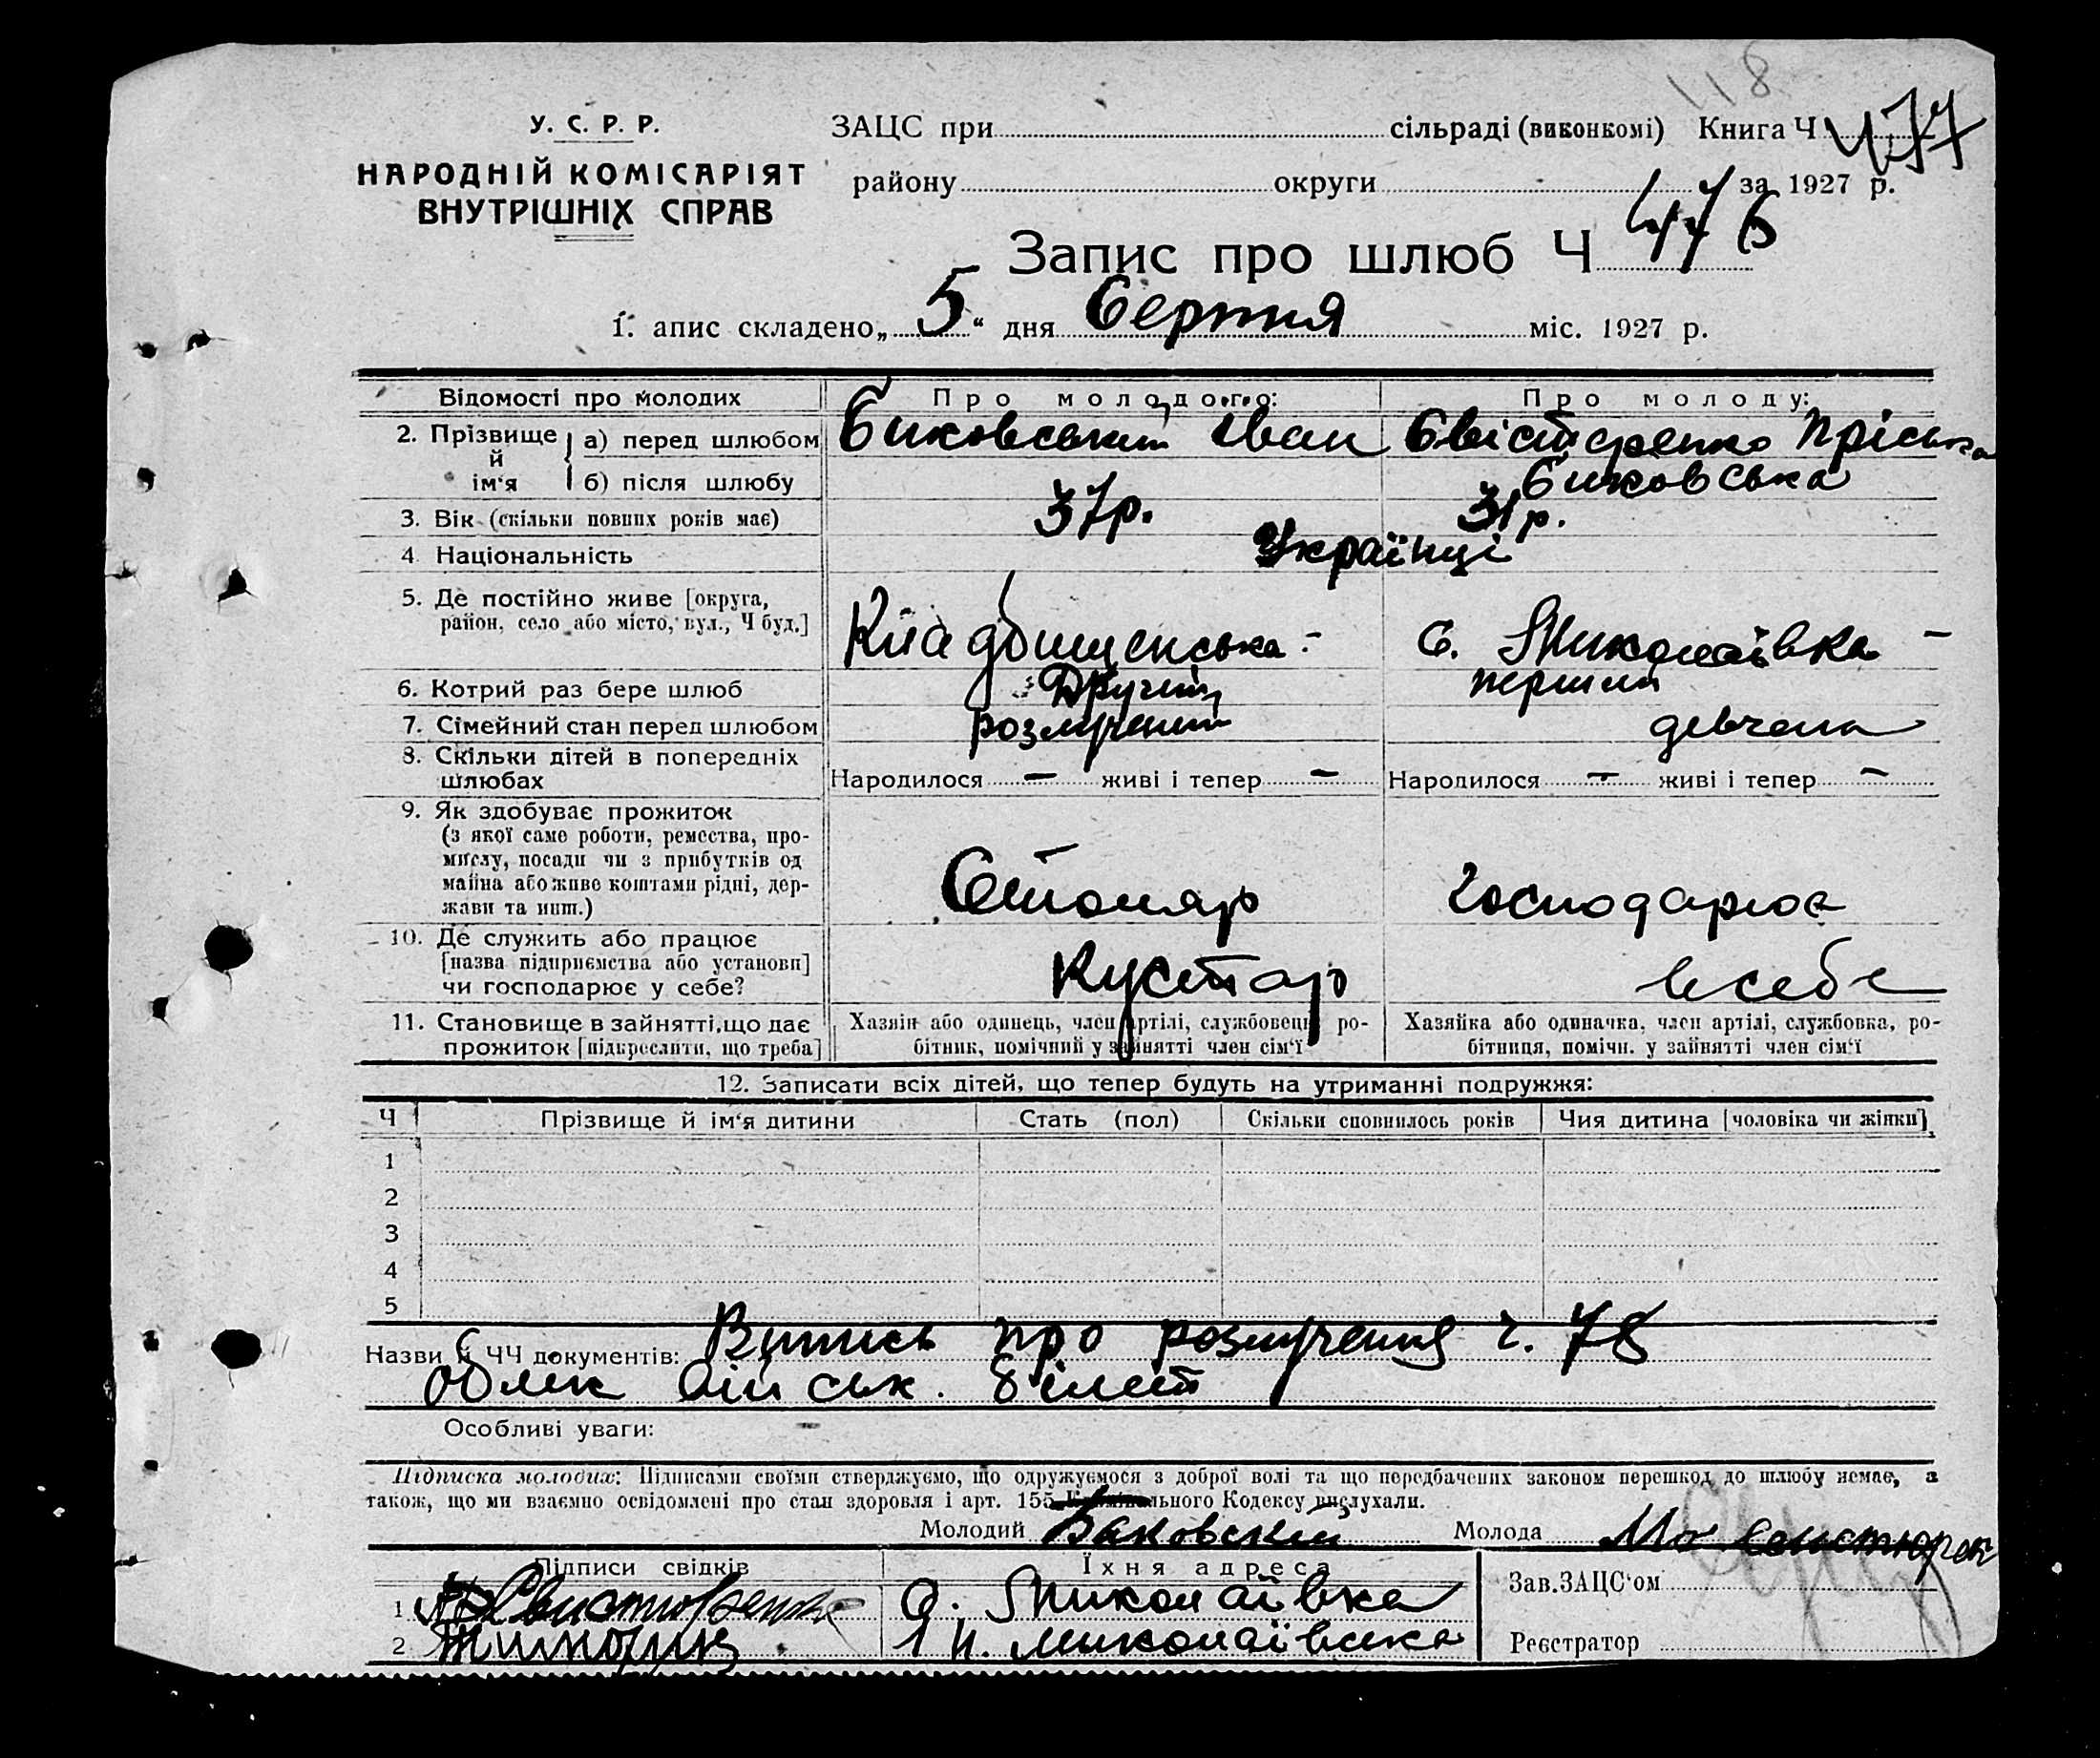 118
У. С. Р. Р.
НАРОДНІЙ КОМІСАРІЯТ
ВНУТРІШНІХ СПРАВ
ЗАЦС при сільраді (виконкомі) Книга Ч 477
району округи за 1927 р.
Запис про шлюб Ч 476
1. апис складено „ 5 “ дня Серпня міс. 1927 р.
Відомості про молодих Про молодого: Про молоду:
2. Прізвище й ім‘я а) перед шлюбом Биковський Іван Свістуренко Пріська
б) після шлюбу Биковська
3. Вік (скільки повних років має) 37р. 31р.
4. Національність Українці
5. Де постійно живе [округа, район, село або місто, вул., Ч буд.] Кладбищенська - С. Миколаївка -
6. Котрий раз бере шлюб Другий перший
7. Сімейний стан перед шлюбом розлучений девчена
8. Скільки дітей в попередніх шлюбах Народилося — живі і тепер — Народилося — живі і тепер —
9. Як здобуває прожиток
(з якої саме роботи, ремества, про-
мислу, посади чи з прибутків од
майна або живе коштами рідні, дер-
жави та инш.) Столяр Господарює
10. Де служить або працює
[назва підприємства або установи]
чи господарює у себе? Кустар в себе
11. Становище в зайнятті, що дає
прожиток [підкреслити, що треба]
Хазяїн або одинець, член артілі, службовець, ро-
бітник, помічний у зайнятті член сім‘ї
Хазяйка або одиначка, член артілі, службовка, ро-
бітниця, помічн. у зайнятті член сім‘ї
12. Записати всіх дітей, що тепер будуть на утриманні подружжя:
Ч Прізвище й ім‘я дитини Стать (пол) Скільки сповнилось років Чия дитина [чоловіка чи жінки]
1
2
3
4
5
Назви й ЧЧ документів: Витись про розлучення ч. 78
Облік військ. білет
Особливі уваги:
Підписка молодих: Підписами своїми стверджуємо, що одружуємося з доброї волі та що передбачених законом перешкод до шлюбу немає, а
також, що ми взаємно освідомлені про стан здоровля і арт. 155 Кримінального Кодексу вислухали.
Молодий Биковский Молода
Підписи свідків Їхня адреса
1 Свистюренко С. Миколаївка
2 Миколаївська
Зав. ЗАЦС‘ом
Реєстратор